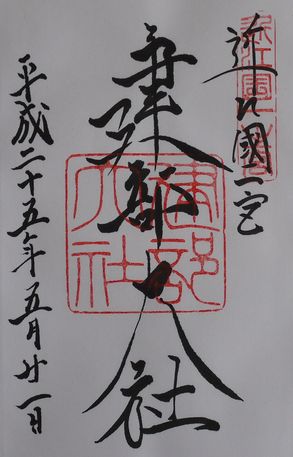 近江國一宮
建部大社
平成二十五年五月廿一日
建部大社